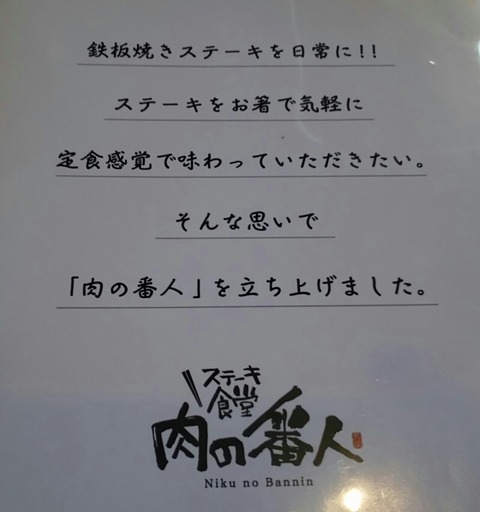 鉄板焼きステーキを日常に!!
ステーキをお箸で気軽に
定食感覚で味わっていただきたい。
そんな思いで
「肉の番人」を立ち上げました。
ステーキ
食堂
肉の番人
Niku no Bannin